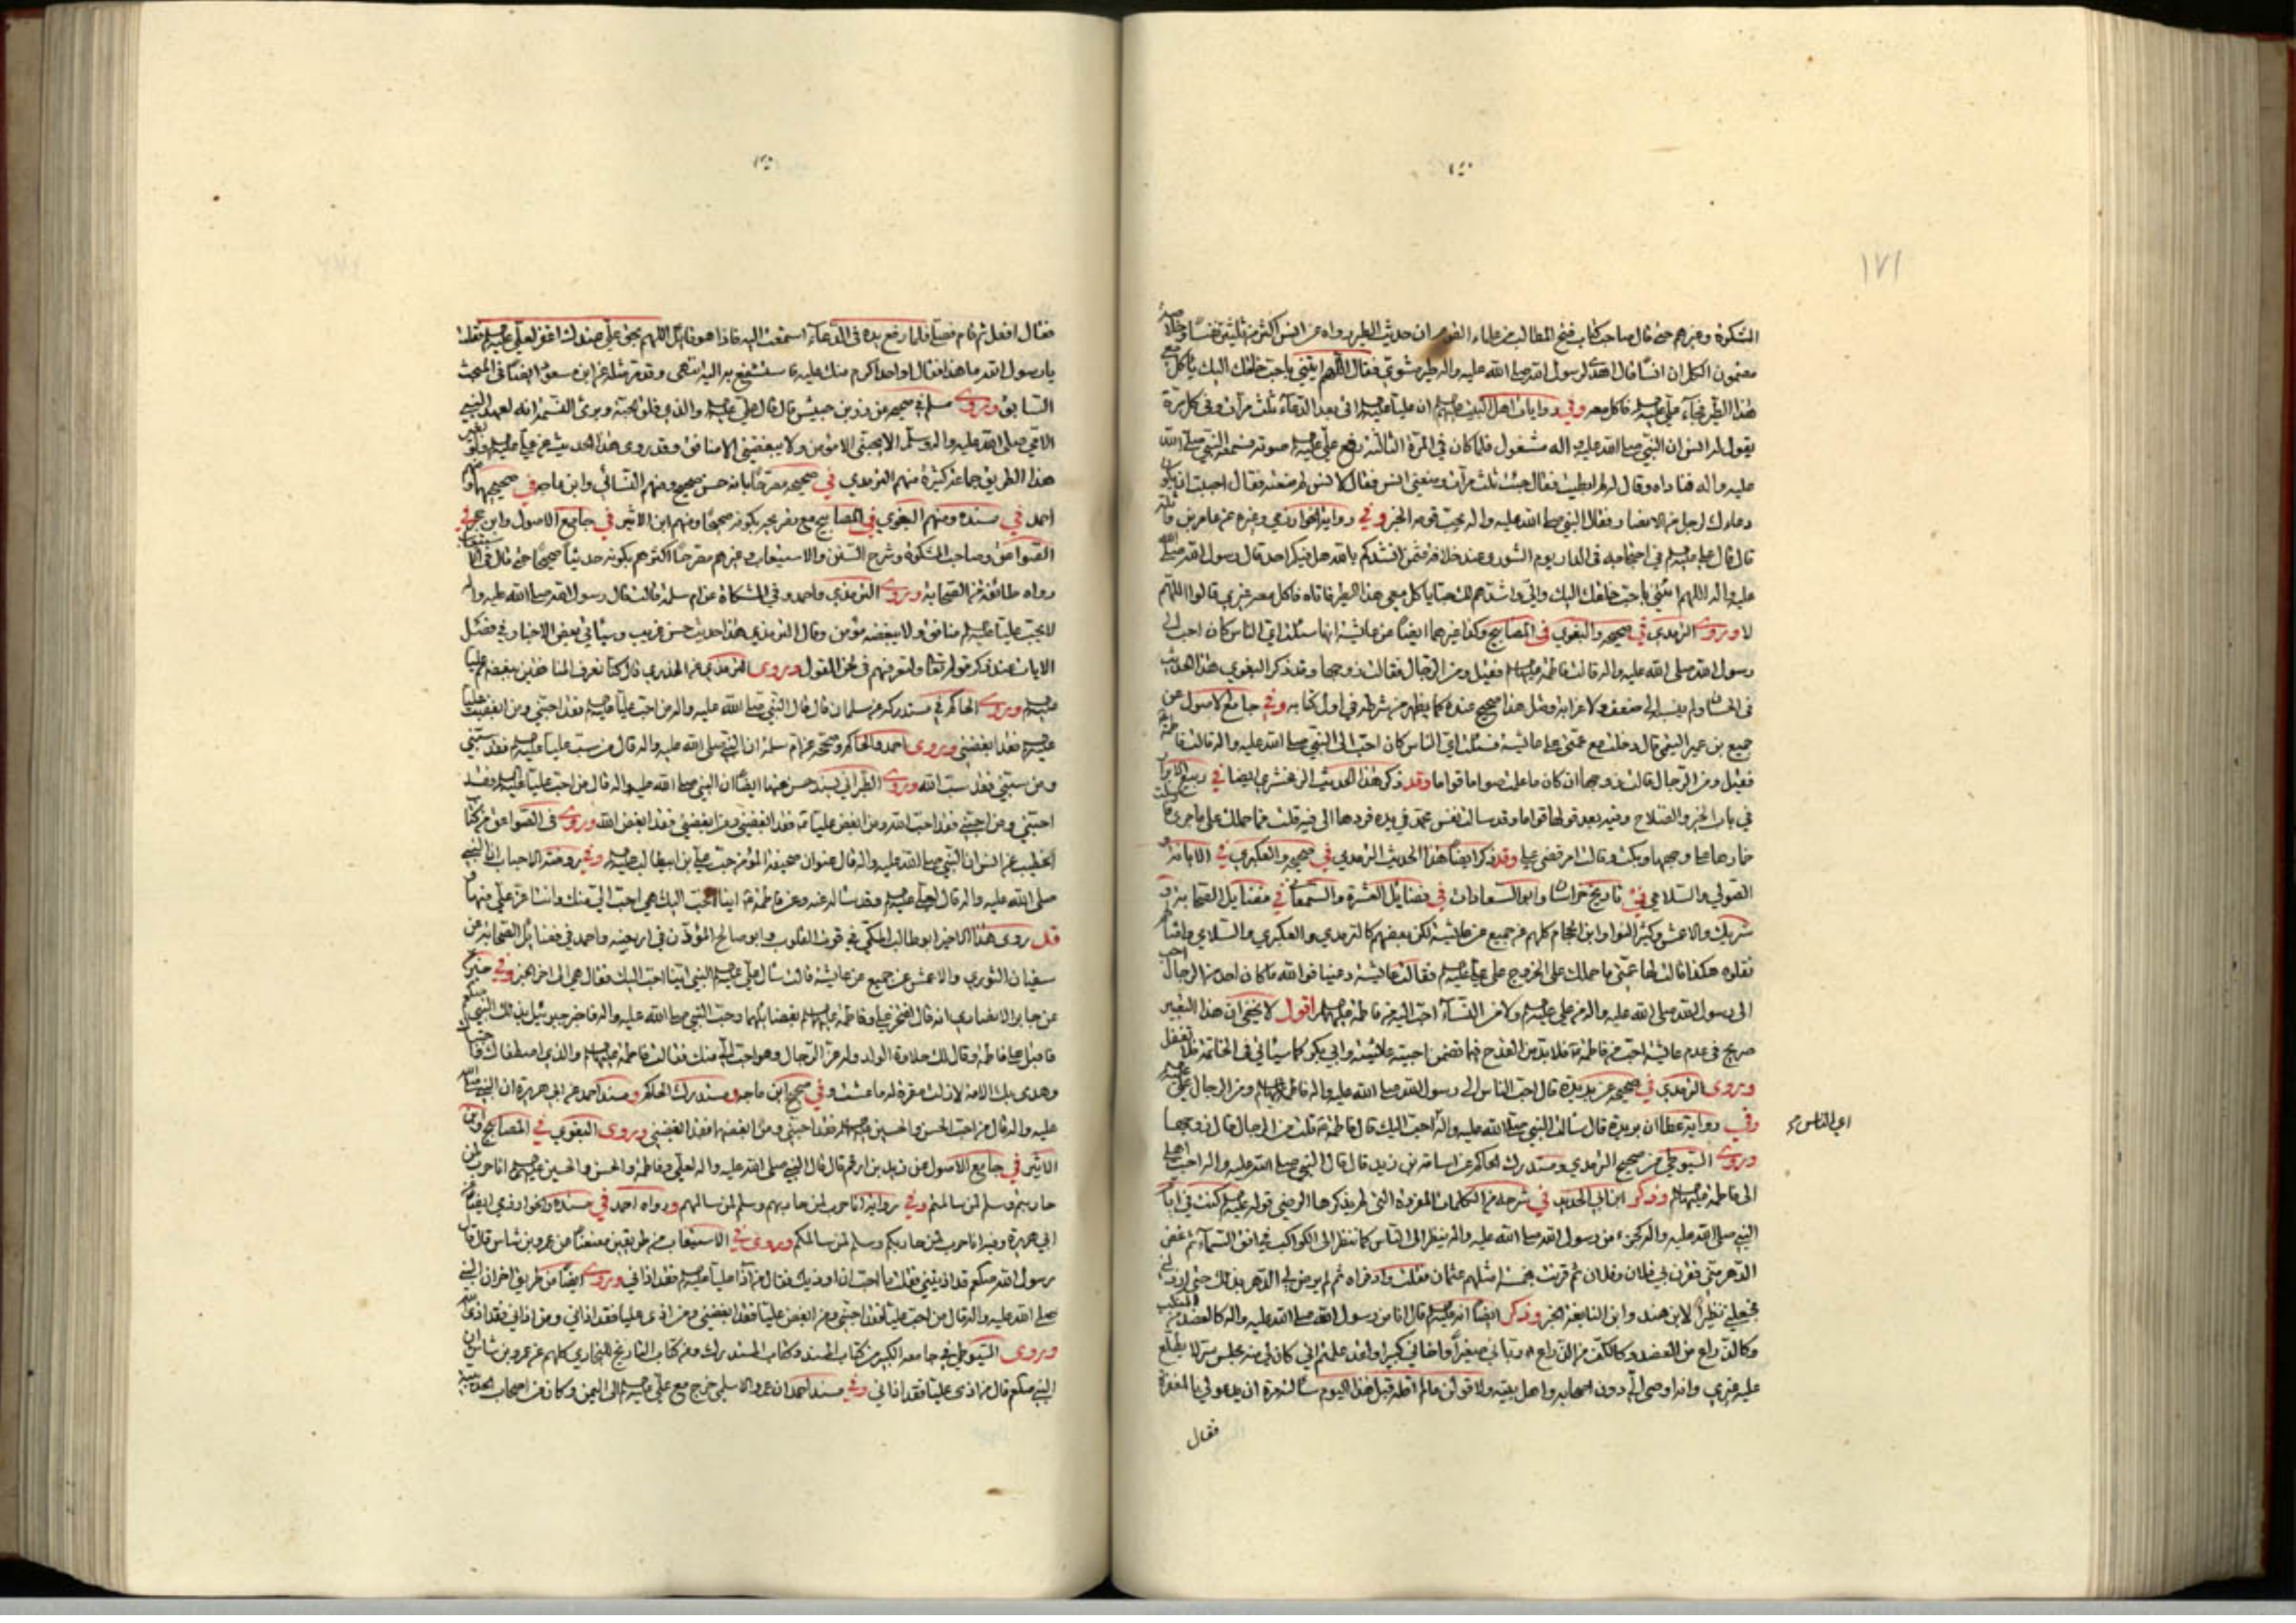 ١٧١
المشكوة وغيرهم حتى قال صاحب كتاب فتح المطالب من علماء القوم ان حديث الطير رواه عن انس اكثر من ثلثين نفسا
مضمون الكل ان انسا قال اهدي لرسول الله صلى الله عليه واله طير مشوي فقال اللهم ايتني باحب خلقك اليك ياكل معي
هذا الطير فجاء علي فاكل معه وفي روايات اهل البيت ان عليا اتى بعد الدعاء ثلث مرات وفي كل مرة
يقول له انس ان النبي صلى الله عليه واله مشغول فلما كان في المرة الثالثة رفع علي صوته فسمعه النبي صلى الله
عليه واله فناداه وقال له لم ابطيت فقال جئت ثلث مرات ومنعني انس فقال لانس لم منعته فقال احببت ان يكون
دعاءك لرجل من الانصار فقال النبي صلى الله عليه واله يحب قومه الخبر وفي رواية الخوارزمي وغيره عن عامر بن
قال قال علي في احتجاجه في الدار يوم الشورى انشدكم بالله هل فيكم احد قال رسول الله صلى الله
عليه واله اللهم ائتني باحب خلقك اليك ياكل معي هذا الطير فاتاه فاكل معه غيري قالوا اللهم
لا وروى الترمذي في صحيحه والبغوي في المصابيح وكذا غيرهما ايضا عن عائشة انها سئلت اي الناس كان احب الى
رسول الله صلى الله عليه واله قالت فاطمة فقيل ومن الرجال فقالت زوجها وقد ذكر البغوي هذا الحديث
في الحسان ولم ينسبه الى ضعف ولا غرابة ومثل هذا صحيح عنده كما يظهر من شرطه في اول كتابه وفي جامع الاصول عن
جميع بن عمير التيمي قال دخلت مع عمتي على عائشة فسئلت اي الناس كان احب الى النبي صلى الله عليه واله قالت فاطمة
فقيل ومن الرجال قالت زوجها ان كان ما علمت صواما قواما وقد ذكر هذا الحديث الزمخشري ايضا في ربيع الابرار
في باب الخير والصلاح وفيه بعد قولها قواما وقد سالت نفس محمد في يده فردها الى فيه قلت فما حملك على ما جرى
خمارها على وجهها وبكت وقالت امر قضي علي وقد ذكر ايضا هذا الحديث الترمذي في صحيحه والعكبري في الابانة
الصولي والسلامي في تاريخ خراسان وابو السعادات في فضايل العشرة والسمعاني في فضايل الصحابة
شريك والاعمش وكثير النوا وابن الحجام كلهم عن جميع عن عائشة لكن بعضهم كالترمذي والعكبري والسلامي
نقلوه هكذا قالت لها عمتي ما حملك على الخروج على علي فقالت عائشة دعينا فوالله ما كان احد من الرجال احب
الى رسول الله صلى الله عليه واله من علي ولا من النساء احب اليه من فاطمة اقول لا يخفى ان هذا التعبير
صريح في عدم عائشة احب من فاطمة فلا بد من القدح فيما تضمن احبية عائشة وابي بكر كما سياتي في الخاتمة فلا تغفل
وروى الترمذي في صحيحه عن بريدة قال احب الناس الى رسول الله صلى الله عليه واله فاطمة ومن الرجال علي
وفي رواية عطا ان بريدة قال سالت النبي صلى الله عليه واله احب اليك قال فاطمة قلت من الرجال قال زوجها
اي الناس
وروى السيوطي من صحيح الترمذي ومستدرك الحاكم عن اسامة بن زيد قال قال النبي صلى الله عليه واله احب اهلي
الى فاطمة وذكر ابن ابي الحديد في شرحه من الكلمات المفردة التي لم يذكرها الرضي قوله كنت في ايام
النبي صلى الله عليه واله كجزء من رسول الله صلى الله عليه واله ينظر الي الناس كما ينظر الى الكواكب في افق السماء ثم غض
الدهر مني فقرن بي فلان وفلان ثم قرنت بخمسة امثلهم عثمان فقلت واذفراه ثم لم يرض لي الدهر بذلك حتى ارذلني
فجعلني نظيرا لابن هند وابن النابغة الخبر وذكر ايضا انه قال انا من رسول الله صلى الله عليه واله كالعضد من المنكب
وكالذراع من العضد وكالكف من الذراع رباني صغيرا واخاني كبيرا ولقد علمتم اني كان لي منه مجلس سر لا يطلع
عليه غيري وانه اوصى الي دون اصحابه واهل بيته ولا قولن ما لم اقله قبل هذا اليوم سالته مرة ان يدعو لي بالمغفرة
فقال
فقال افعل ثم قام فصلى فلما رفع يده في الدعاء استمعت اليه فاذا هو قائل اللهم بحق علي عندك اغفر لعلي فقلت
يا رسول الله ما هذا فقال او احد اكرم منك عليه فاستشفع به اليه انتهى وقد مر مثله عن ابن مسعود ايضا في المبحث
السابق وروى مسلم في صحيحه عن زر بن حبيش قال قال علي والذي فلق الحبة وبرئ النسمة انه لعهد النبي
الامي صلى الله عليه واله وسلم الا يحبني الا مؤمن ولا يبغضني الا منافق وقد روى هذا الحديث عن علي
هذا الطريق جماعة كثيرة منهم الترمذي في صحيحه مصرحا بانه حسن صحيح ومنهم النسائي وابن ماجه في صحيحيهما
احمد في مسنده ومنهم البغوي في المصابيح مع تصريحه بكونه صحيحا ومنهم ابن الاثير في جامع الاصول وابن حجر في
الصواعق وصاحب المشكوة وشرح السنن والاستيعاب وغيرهم مصرحا اكثرهم بكونه حديثا صحيحا حتى قال في الاستيعاب
رواه طائفة من الصحابة وروى الترمذي واحمد وفي المشكاة عن ام سلمة قالت قال رسول الله صلى الله عليه واله
لا يحب عليا منافق ولا يبغضه مؤمن وقال الترمذي هذا حديث حسن غريب وسياتي بعض الاخبار في فضل
الايات عند ذكر قوله تعالى ولتعرفنهم في لحن القول وروى الترمذي عن الخدري قال كنا نعرف المنافقين ببغضهم عليا
وروى الحاكم في مستدركه عن سلمان قال قال النبي صلى الله عليه واله من احب عليا فقد احبني ومن ابغض عليا
فقد ابغضني وروى احمد والحاكم وصححه عن ام سلمة ان النبي صلى الله عليه واله قال من سب عليا فقد سبني
ومن سبني فقد سب الله وروى الطبراني بسند حسن عنها ايضا ان النبي صلى الله عليه واله قال من احب عليا فقد
احبني ومن احبني فقد احب الله ومن ابغض عليا فقد ابغضني ومن ابغضني فقد ابغض الله وروى في الصواعق من كتاب
الخطيب عن انس ان النبي صلى الله عليه واله قال عنوان صحيفة المؤمن حب علي بن ابيطالب وفي روضة الاحباب ان النبي
صلى الله عليه واله قال لعلي وقد سئله عنه وعن فاطمة اينا احب اليك هي احب الي منك وانت اعز علي منها
قد روى هذا الخبر ابو طالب المكي في قوت القلوب وابو صالح المؤذن في اربعينه واحمد في فضايل الصحابة عن
سفيان الثوري والاعمش عن جميع عن عائشة قالت سال علي النبي اينا احب اليك فقال هي الى اخر الخبر وفي خبر
عن جابر الانصاري انه قال افتخر علي وفاطمة بفضايلهما وحب النبي صلى الله عليه واله فاخبر جبرئيل بذلك النبي
فاقبل على فاطمة وقال لك حلاوة الولد وله عز الرجال وهو احب الي منك فقالت فاطمة والذي اصطفاك
وهدى بك الامة لا زلت مقرة له ما عشت وفي صحيح ابن ماجه ومستدرك الحاكم ومسند احمد عن ابي هريرة ان النبي صلى الله
عليه واله قال من احب الحسن والحسين فقد احبني ومن ابغضهما فقد ابغضني وروى البغوي في المصابيح وابن
الاثير في جامع الاصول عن زيد بن ارقم قال قال النبي صلى الله عليه واله لعلي وفاطمة والحسن والحسين انا حرب لمن
حاربتم وسلم لمن سالمتم وفي رواية انا حرب لمن حاربهم وسلم لمن سالمهم ورواه احمد في مسنده والخوارزمي ايضا
ابي هريرة وفيه انا حرب لمن حاربكم وسلم لمن سالمكم وروى في الاستيعاب من طريقين عن عمرو بن شاس قال قال
رسول الله صلعم قد اذيتني فقلت ما احب ان اوذيك فقال من آذا عليا فقد اذاني وروى ايضا من طريق اخر ان النبي
صلى الله عليه واله قال من احب عليا فقد احبني ومن ابغض عليا فقد ابغضني ومن اذى عليا فقد اذاني ومن اذاني فقد اذى الله
وروى السيوطي في جامعه الكبير من كتاب المسند وكتاب المستدرك ومن كتاب التاريخ للبخاري كلهم عن عمرو بن شاس ان
النبي صلعم قال من اذى عليا فقد اذاني وفي مسند احمد ان عمرو الاسلمي خرج مع علي الى اليمن وكان من اصحاب الحديبية